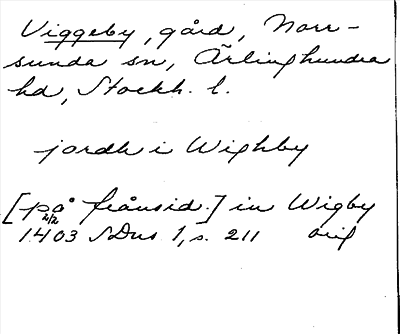 Viggeby, gård, Norr-
sunda sn, Ärlinghundra
hd, Stockh. l.
jordh i Wighby
[på frånsid.] in Wigby
1403 2/2 SDns 1, s. 211 orig